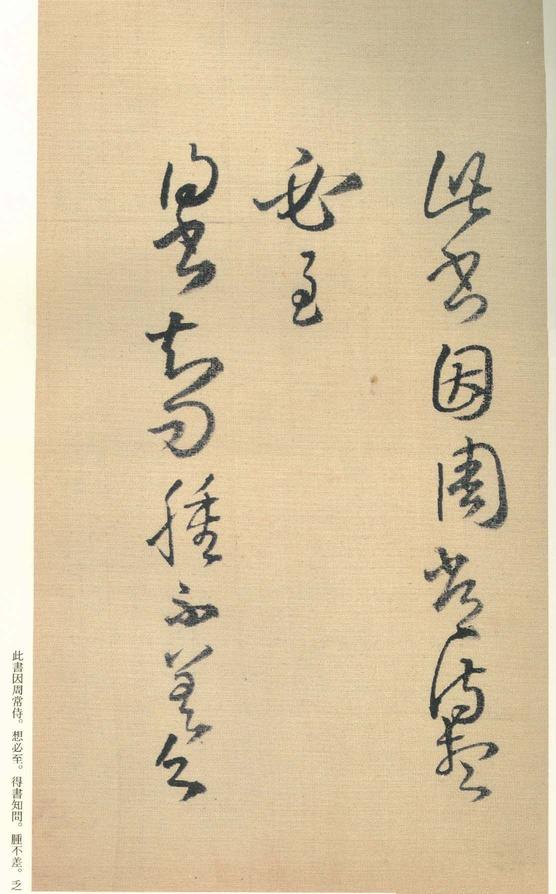 此書因周常侍想
必至
得書知問腫不差乏
此書因周常侍。想必至。得書知問。腫不差。乏